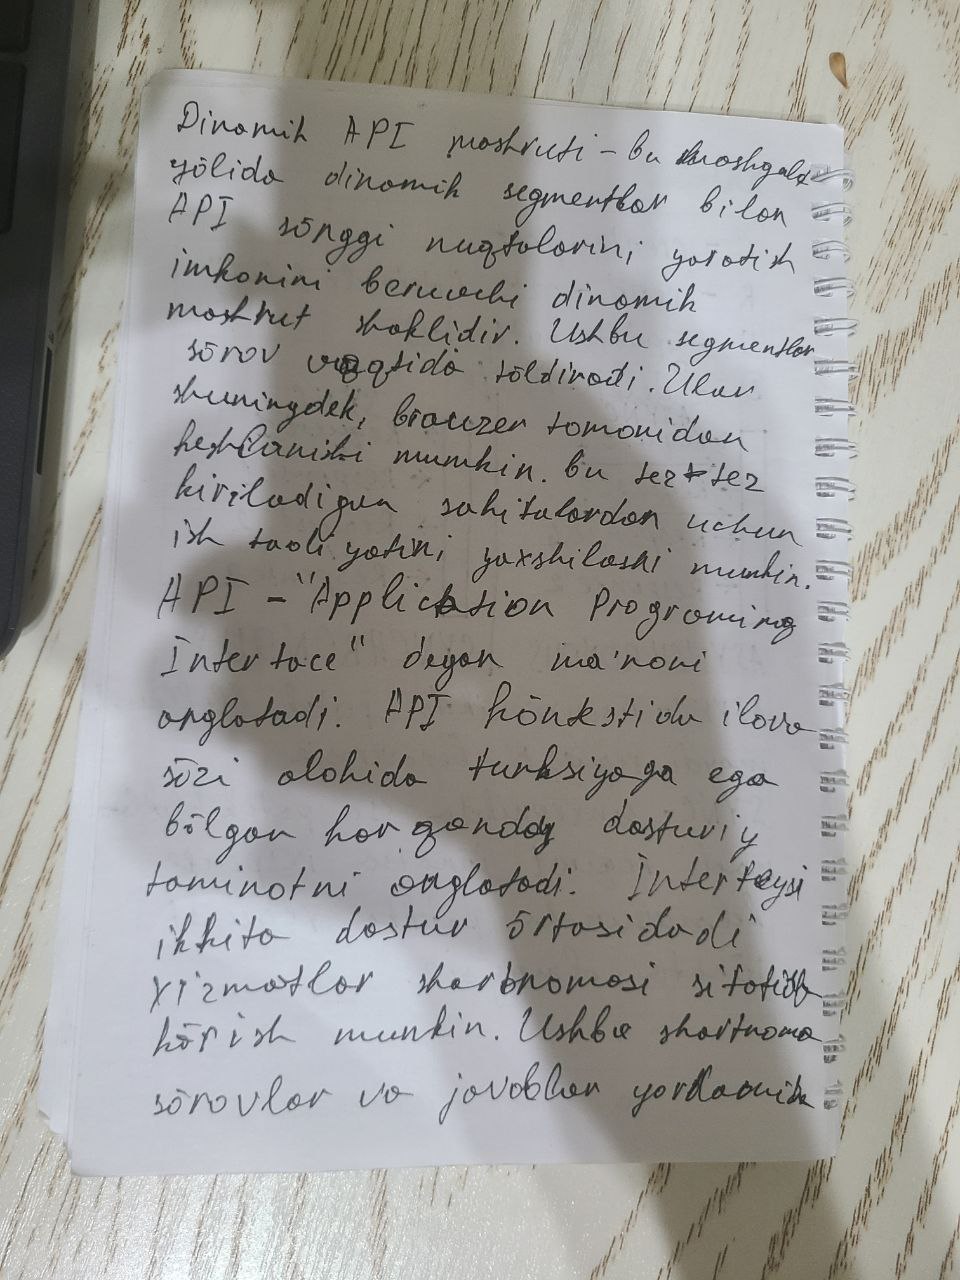 Dinamik API mashruti – bu mashgala
yōlida dinamik segmentlar bilan
API sōnggi nuqtalarini yaratish
imkonini beruvchi dinamik
mashrut shaklidir. Ushbu segmentlar
sōrov vaqtida tōldiradi. Ular
shuningdek, brauzer tomonidan
heshlanishi mumkin. bu tez-tez
kiriladigan sahifalardan uchun
ish faoliyatini yaxshilashi mumkin.
API – "Application Programing
Interface" degan ma'noni
anglatadi. API kōntekstida ilova
sōzi alohida funksiyaga ega
bōlgan har qanday dasturiy
taminotni anglatadi. Interfeysi
ikkita dastur ōrtasidadi
xizmatlar shartnomasi sifatida
kōrish mumkin. Ushbu shartnoma
sōrovlar va javoblar yordamida